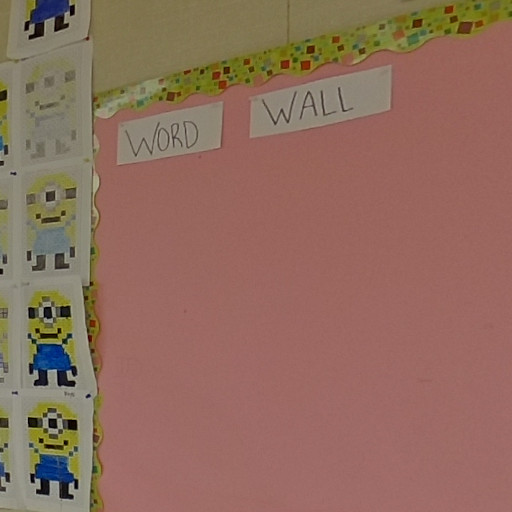 WORD WALL